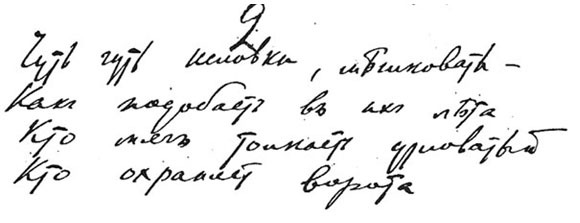 2
Чуть чуть неловки, мѣшковаты –
Какъ подобаетъ въ ихъ лѣта
Кто мячъ толкаетъ угловатый
Кто охраняетъ ворота